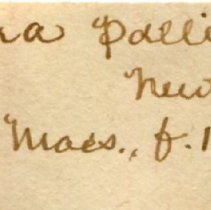 na Palli
New
Mass., f. 1